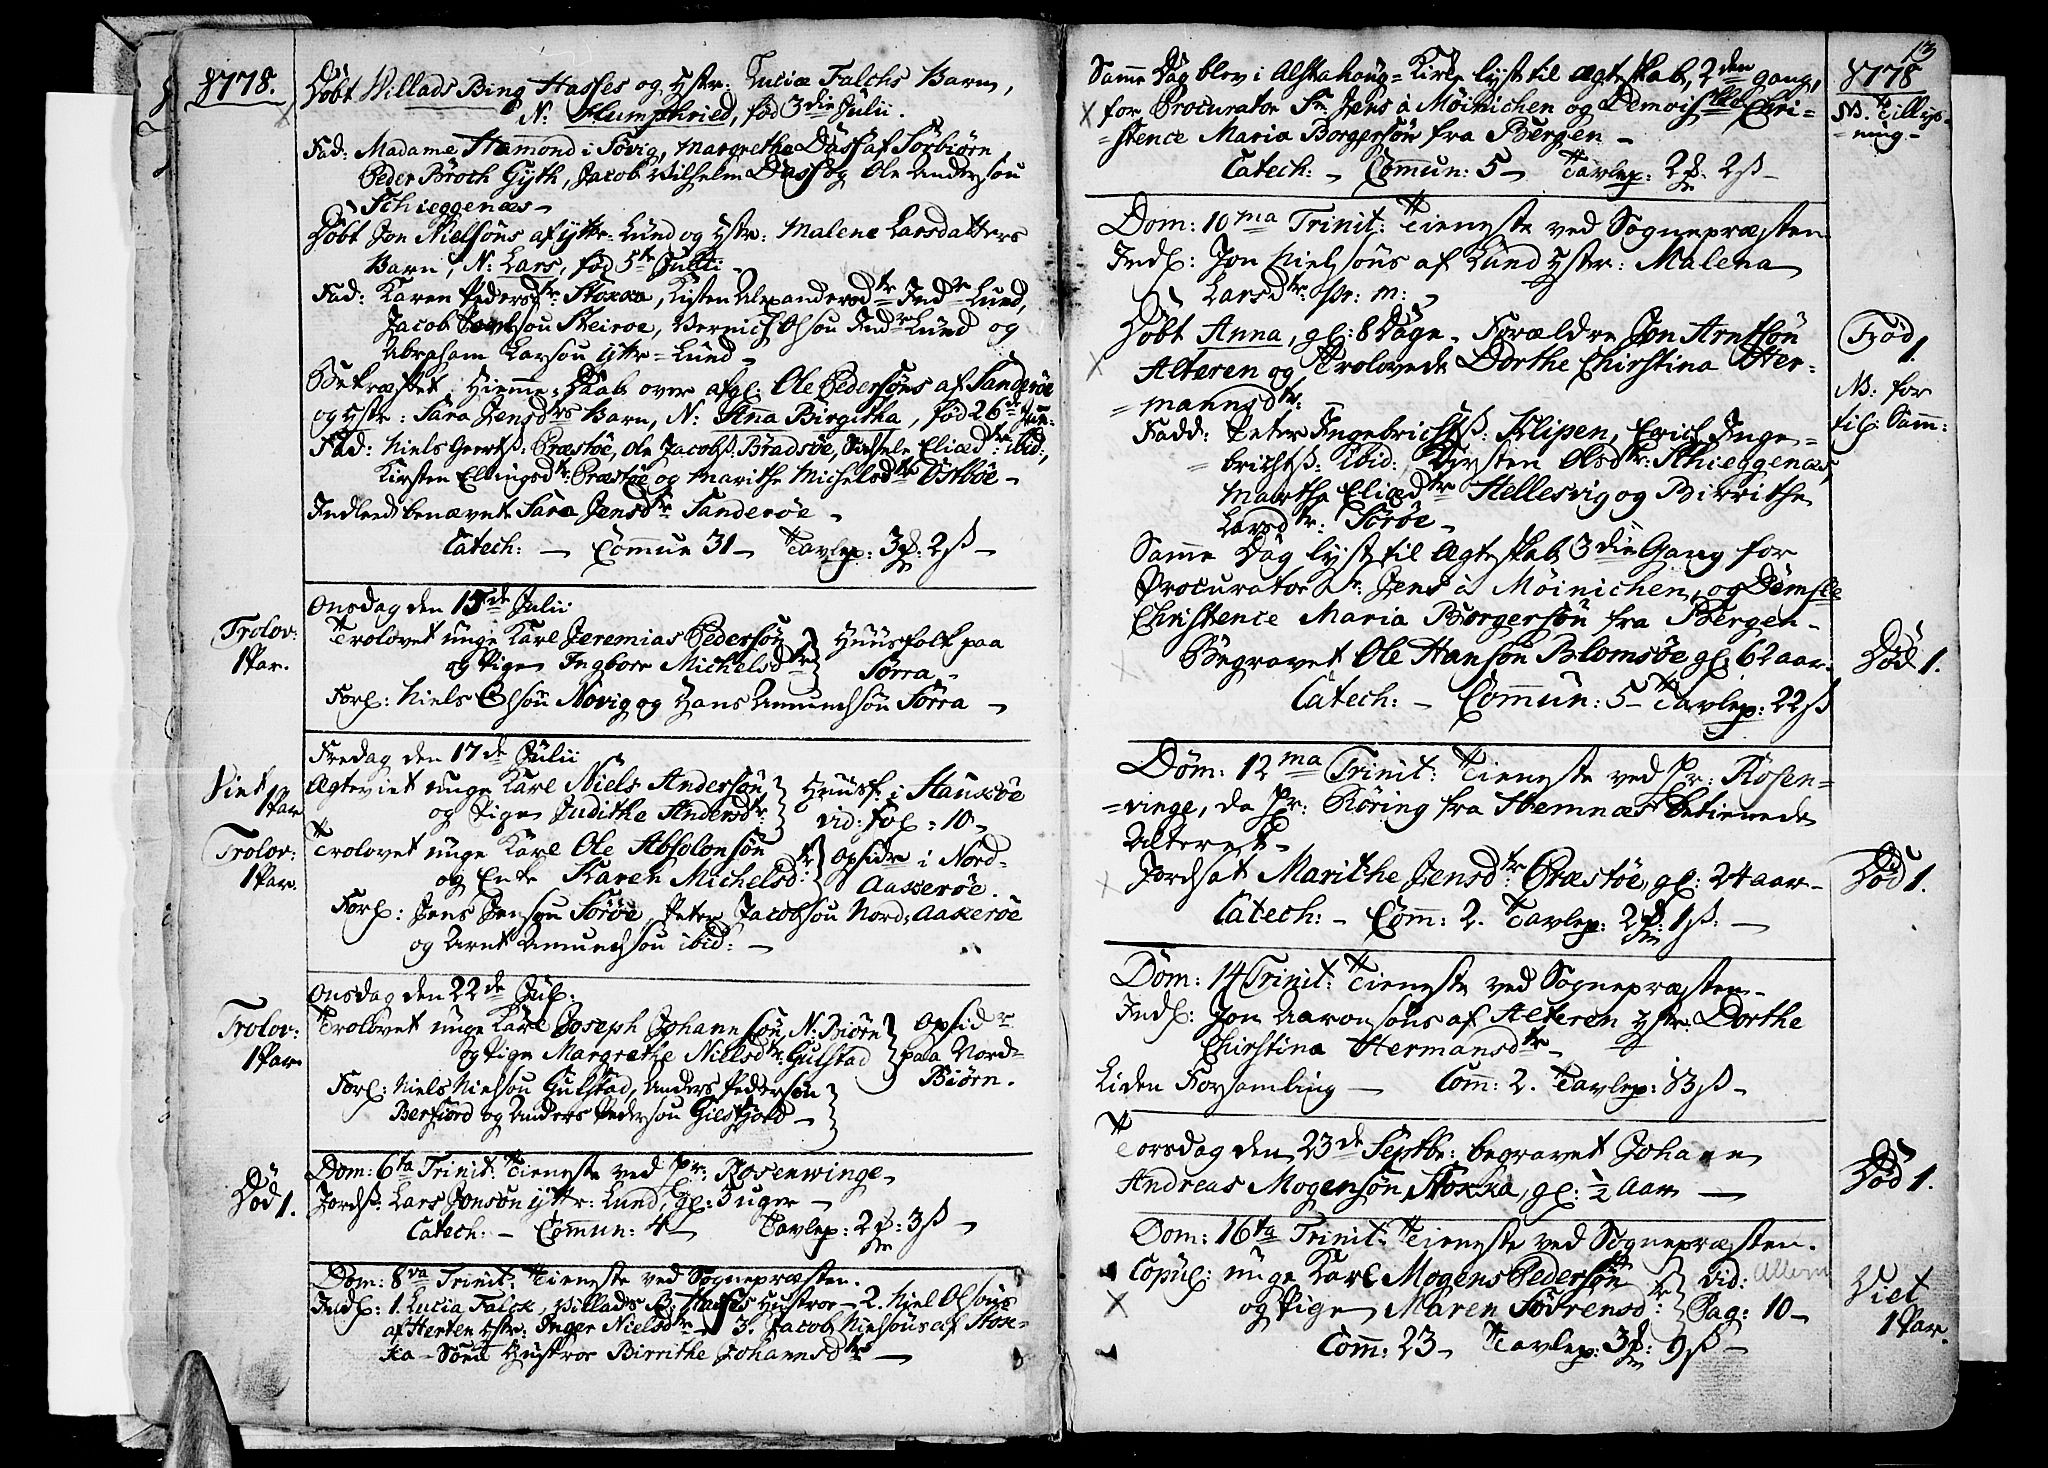 1778.
Døbt Willads Bing Hasses og Hstr: Luciæ Falchs Barn,
N: Humphried, fød 3die Julii.
Fad: Madame Hamond i Søvig, Margretha Dass af Sørbiørn,
Peder Broch Gyth, Jacob Wilhelm Dass og Ole Andersøn
Schieggenæs
Døbt Jon Nielsøns af ytr-Lund og Hstr: Malene Larsdatters
Barn, N: Lars, fød 5te Julii
Fad: Karen Pedersdtr: Stokka, Kisten Alexandersdtr Indre Lund,
Jacob Steiroe, Bernich Olsøn Indre Lund og
Abraham Larsøn ytr-Lund
Bekræftet Hiemme-Daab over afgl: Ole Pedersøns af Sanderøe
og Hstr: Sara Jensdrs Barn, N: Anna Birgitha, fød 26de Jun:
Fad: Niels Geertss: Præstøe, Ole Jacobss. Bradsøe, Sidsele Eliædtr: ibid:,
Kirsten Ellingsdtr: Præstøe og Marithe Michelsdtr Østbøe
Indleed benævnte Sara Jensdtr Sanderøe
Catech: — Commun 31 — Tavlep: 3 2ß —
Trolov:
1 Par.
Onsdag den 15de Julii
Trolovet unge Karl Jeremias Pedersøn
og Pigen Ingborr Michelsdtr
Huusfolk paa
Sørra
Forl: Niels Olsøn Novig og Hans Amundsøn Sørra
Viet
1 Par
Fredag den 17de Julii
Ægteviet unge Karl Niels Andersøn
og Pigen Judithe Andersdtr:
Huusf: i Hauxøe
vid: fol: 10
Trolov:
1 Par.
Trolovet unge Karl Ole Absolonsøn
og Enke Karen Michelsdtr:
Opsidre i Nord-
Aakerøe.
Forl: Jens Jensøn Sørøe, Peter Jacobsøn Nord: Aakerøe
og Arnt Amundsøn ibid: —
Trolov:
1 Par
Onsdag den 22de Jul:
Trolovet unge Karl Joseph Johannsøn N: Biørn
og Pigen Margrethe Nielsdtr: Gulstad
Opsidr
paa Nord-
Biørn.
Forl: Niels Nielsøn Gulstad, Anders Pedersøn
Berfiord og Anders Pedersøn Giesfiold
Dom: 6ta Trinit: Tieneste ved Hr: Rosenwinge
Død
1.
Jords: Lars Jonsøn ytr: Lund, gl: 3 uger
Catech: — Commun: 4 — Tavlep: 2 3ß —
Dom: 8va Trinit: Tieneste ved Sognepræsten.
Indl: 1. Lucia Falck, Willads B: Hasses Hustroe — 2. Niel Olsøns
af Herten Hstr: Inger Nielsdtr 3. Jacob Nielsøns af Stok-
ka-Søen Hustroe Birrithe Johannsdtr —
13
1778
Samme Dag blev i Alstahoug-Kirke lyst til Ægteskab, 2den gang,
for Procurator Sr. Jens à Møinichen og Demoiselle Chri-
stence Maria Borgersøn fra Bergen
NB. Tillys-
ning
Catech: — Commun: 5 — Tavlep: 2 2ß
Dom: 10ma Trinit: Tieneste ved Sognepræsten.
Indl: Jon Nielsøns af Lund Hstr: Malena
Larsdtr: pr: m:
Døbt Anna, gl: 8 Dage. Forældre Jon Arntsøn
Alteren og Trolovede Dorthe Chirstina Her-
mannsdtr:
Fød
1
NB: for
til: Samm:
Fadd: Peter Ingebrichtss: Klipen, Erich Inge-
brichtss: ibid: Kirsten Olsdtr: Schieggenæs,
Martha Eliædtr Hellesvig og Birrithe
Larsdtr: Sørøe
Samme Dag lyst til Ægteskab 3die Gang for
Procurator Sr. Jens à Møinichen, og Demslle
Christence Maria Borgersøn fra Bergen
Begravet Ole Hansøn Blomsøe, gl: 62 aar.
Død 1.
Catech: — Commun: 5 — Tavlep: 22ß
Dom: 12ma Trinit: Tieneste ved Hr: Rosen-
vinge, da Hr: Røring fra Hemnæs betienede
Alteret
Jordsat Marithe Jensdtr: Præstøe, gl: 24 aar
Død 1.
Catech: — Comm: 2. Tavlep: 2 1ß: —
Dom: 14 Trinit: Tieneste ved Sognepræsten
Indl: Jon Aaronsøns af Alteren Hstr: Dorthe
Chirstina Hermansdtr
Liden Forsamling — Comm: 2. Tavlep: 13ß
Torsdag den 23de Septbr: begravet Johann
Andreas Mogensøn Stokka, gl: ½ Aar —
Død 1.
Dom: 16ta Trinit: Tieneste ved Sognepræsten.
Copul: unge Karl Mogens Pedersøn
og Pigen Maren Sørrensdtr:
vid:
Pag: 10
Viet
1 Par.
Comm: 23 — Tavlep: 3 9ß